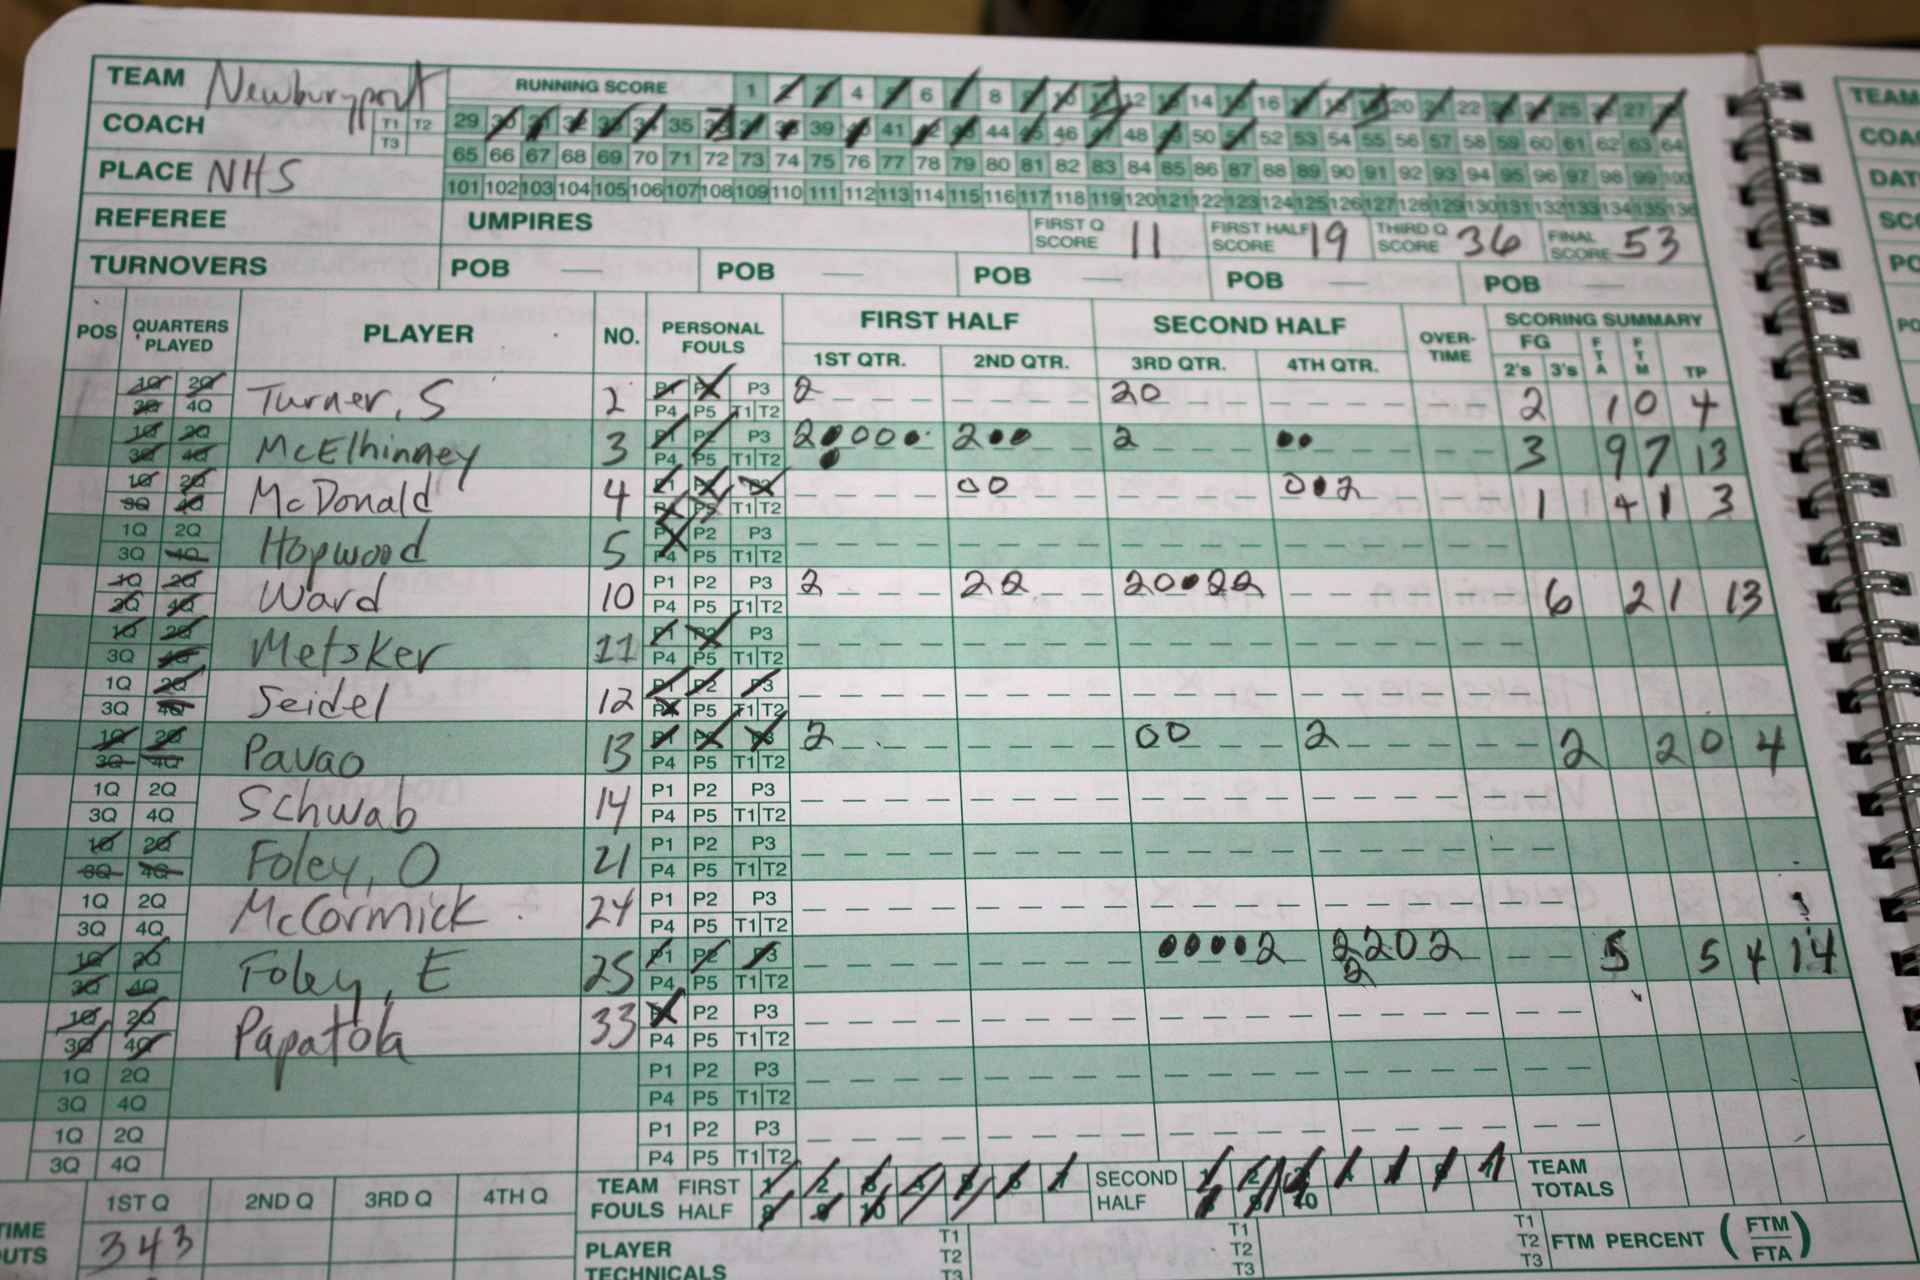 TEAM Newburyport RUNNING SCORE 1 2 3 4 5 6 7 8 9 10 11 12 13 14 15 16 17 18 19 20 21 22 23 24 25 26 27 28
COACH T1 T2 T3 29 30 31 32 33 34 35 36 37 38 39 40 41 42 43 44 45 46 47 48 49 50 51 52 53 54 55 56 57 58 59 60 61 62 63 64
PLACE NHS 65 66 67 68 69 70 71 72 73 74 75 76 77 78 79 80 81 82 83 84 85 86 87 88 89 90 91 92 93 94 95 96 97 98 99 100
101 102 103 104 105 106 107 108 109 110 111 112 113 114 115 116 117 118 119 120 121 122 123 124 125 126 127 128 129 130 131 132 133 134 135 136
REFEREE UMPIRES FIRST Q SCORE 11 FIRST HALF SCORE 19 THIRD Q SCORE 36 FINAL SCORE 53
TURNOVERS POB POB POB POB POB
POS QUARTERS PLAYED PLAYER NO. PERSONAL FOULS FIRST HALF SECOND HALF OVER-TIME SCORING SUMMARY
1ST QTR. 2ND QTR. 3RD QTR. 4TH QTR. FG 2's 3's FTA FTM TP
1Q 2Q Turner, S 2 P1 P2 P3 2 20 2 1 0 4
3Q 4Q P4 P5 T1 T2
1Q 2Q McElhinney 3 P1 P2 P3 2●000● 2●● 2 ●● 3 9 7 13
3Q 4Q P4 P5 T1 T2 ●
1Q 2Q McDonald 4 P1 P2 P3 00 0●2 1 4 1 3
3Q 4Q P4 P5 T1 T2
1Q 2Q Hopwood 5 P1 P2 P3
3Q 4Q P4 P5 T1 T2
1Q 2Q Ward 10 P1 P2 P3 2 22 20●22 6 2 1 13
3Q 4Q P4 P5 T1 T2
1Q 2Q Metsker 11 P1 P2 P3
3Q 4Q P4 P5 T1 T2
1Q 2Q Seidel 12 P1 P2 P3
3Q 4Q P4 P5 T1 T2
1Q 2Q Pavao 13 P1 P2 P3 2 00 2 2 2 0 4
3Q 4Q P4 P5 T1 T2
1Q 2Q Schwab 14 P1 P2 P3
3Q 4Q P4 P5 T1 T2
1Q 2Q Foley, O 21 P1 P2 P3
3Q 4Q P4 P5 T1 T2
1Q 2Q McCormick 24 P1 P2 P3
3Q 4Q P4 P5 T1 T2
1Q 2Q Foley, E 25 P1 P2 P3 ●●●●2 2202 5 5 4 14
3Q 4Q P4 P5 T1 T2 2
1Q 2Q Papatola 33 P1 P2 P3
3Q 4Q P4 P5 T1 T2
1Q 2Q P1 P2 P3
3Q 4Q P4 P5 T1 T2
1Q 2Q P1 P2 P3
3Q 4Q P4 P5 T1 T2
1ST Q 2ND Q 3RD Q 4TH Q TEAM FOULS FIRST HALF 1 2 3 4 5 6 7 8 9 10 SECOND HALF 1 2 3 4 5 6 7 8 9 10 TEAM TOTALS
TIME OUTS 343 PLAYER TECHNICALS T1 T2 T3 T1 T2 T3 T1 T2 T3 FTM PERCENT (FTM/FTA)
TEAM